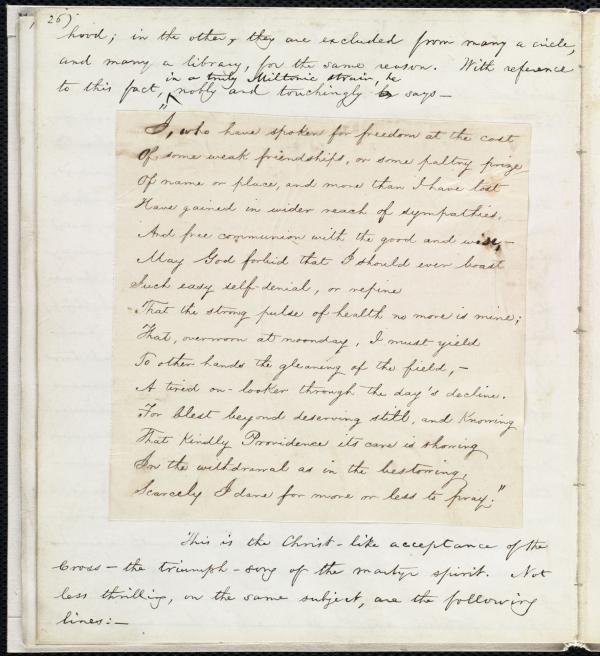 26)
hood; in the other, they are excluded from many a circle,
and many a library, for the same reason. With reference
in a truly Miltonic strain, he
to this fact, nobly and touchingly he says—
"I, who have spoken for freedom at the cost
Of some weak friendships, or some paltry prize
Of name or place, and more than I have lost
Have gained in wider reach of sympathies,
And free communion with the good and wise,—
May God forbid that I should ever boast
Such easy self-denial, or repine
That the strong pulse of health no more is mine;
That, overworn at noonday, I must yield
To other hands the gleaning of the field,—
A tired on-looker through the day's decline.
For blest beyond deserving still, and knowing
That kindly Providence its care is showing
In the withdrawal as in the bestowing,
Scarcely I dare for more or less to pray."
This is the Christ-like acceptance of the
Cross—the triumph-song of the martyr spirit. Not
less thrilling, on the same subject, are the following
lines:—